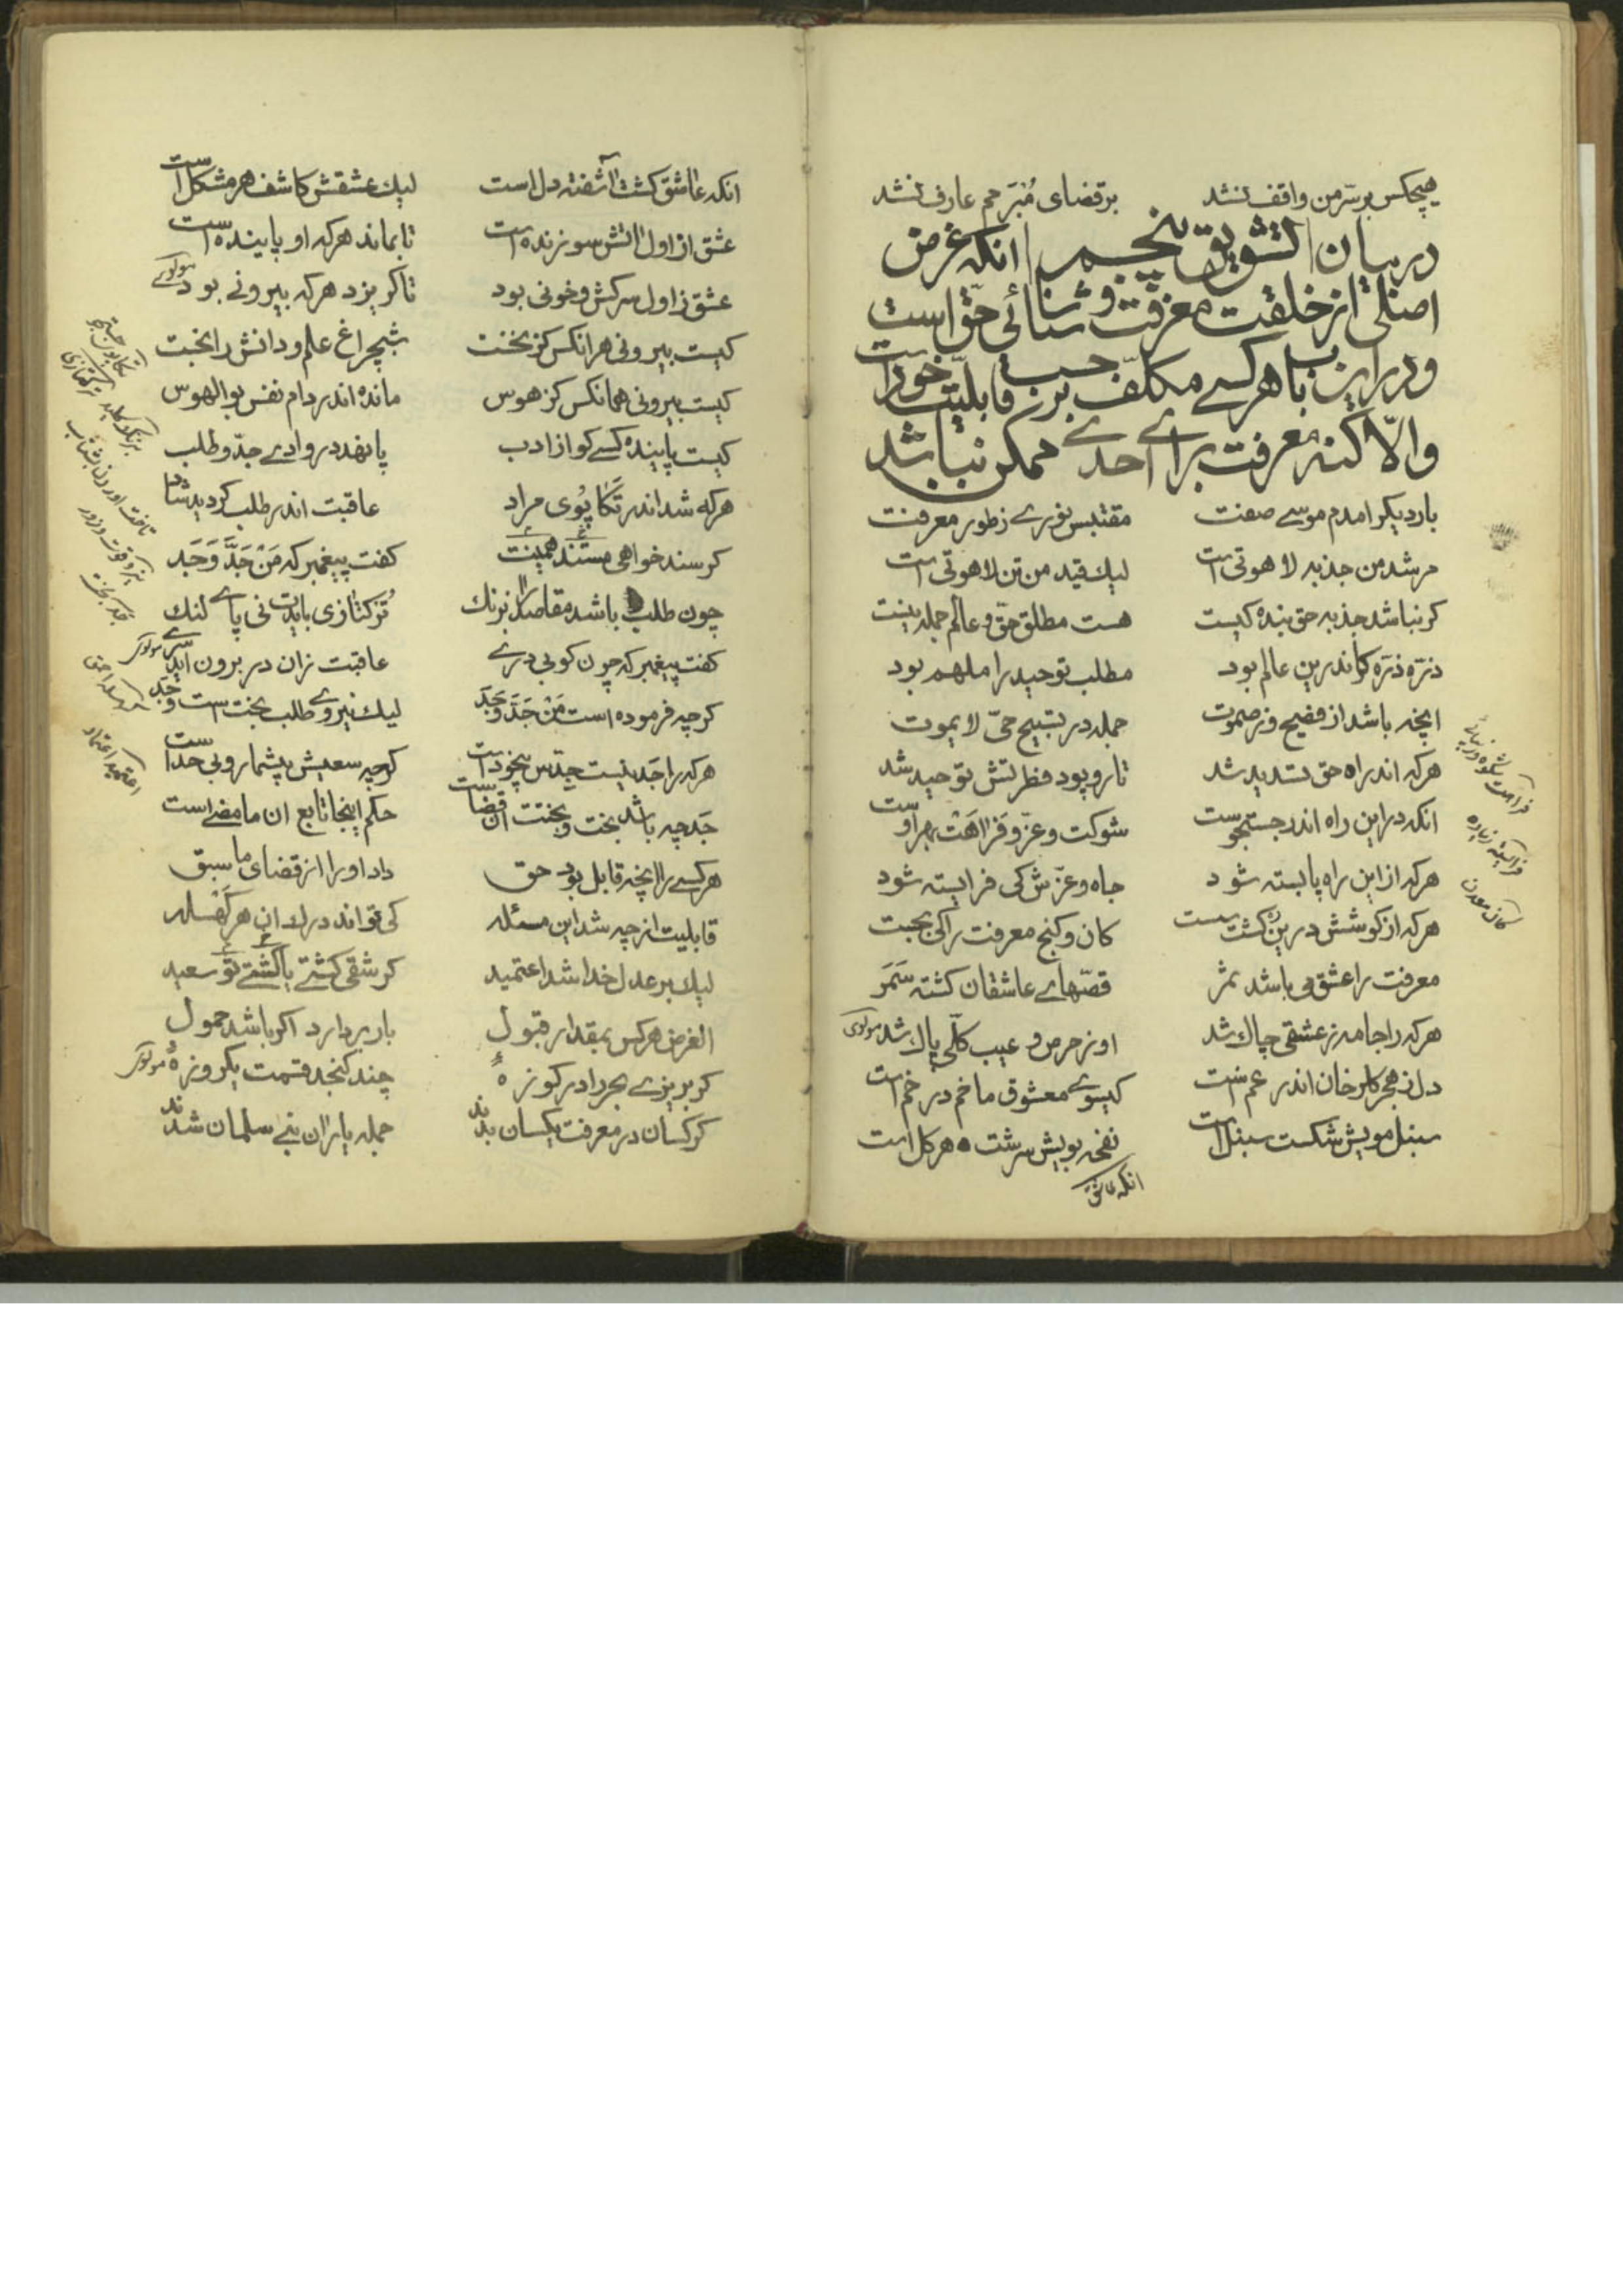 هیچکس بر سرّ من واقف نشد بر قضای مُبَرَمم عارف نشد
در بیان التشویق پنجم انکه غرض
اصلی از خلقت معرفت و شناسائی حقّ است
و در این باب هر کسے مکلّف بر حسب قابلیّت خود است
و الّا کنه معرفت براے احدے ممکن نباشد
بار دیکر امدم موسے صفت مقتبس نورے ز طور معرفت
مرشد من جذبه لاهوتی است لیك قید من تن لاهوتی است
کر نباشد جذبه حق بنده کیست هست مطلق حقّ و عالم جمله نیست
ذرّه ذرّه کاندرین عالم بود مطلب توحید را ملهم بود
انچه باشد از فصیح و ز صموت جمله در تسبیح حیّ لا یموت
هرکه اندر راه حق تسدید شد تار و پود فطرتش توحید شد
انکه در این راه اندر جستجوست شوکت و عزّ و فَرَاهَتْ بهر اوست
هرکه از این راه پا بسته شود جاه و عزّش کی فرایسته شود
هرکه از کوشش درین ره کشت سست کان و کنج معرفت را کی بجست
معرفت را عشق می باشد ثمر قصّهاے عاشقان کشته سَمَر
هرکه را جامه ز عشقی چاك شد او ز حرص و عیب کلّی پاك شد مولوی
دل ز هجر کلرخان اندر غم است کیسوے معشوق ما خم در خم است
سنبل مویش شکست سنبل است نفحه بویش سرشت هر کل است
انکه عاشق
فراهت شکوه و زیبائی
فرایسته زیاده
کان معدن
انکه عاشق کشت آشفته دل است لیك عشقش کاشف هر مشکل است
عشق از اول اتش سوزنده است تا بماند هرکه او پاینده است
عشق ز اول سرکش و خونی بود تا کریزد هرکه بیرونی بود مولوے
کیست بیرونی هر انکس کز بخت شبچراغ علم و دانش را بخت
کیست بیرونی همانکس کز هوس مانده اندر دام نفس بوالهوس
کیست پاینده کسے کو از ادب پا نهد در وادے جدّ و طلب
هرکه شد اندر تَکاپُوی مراد عاقبت اندر طلب کردید شاد
کر سند خواهی مستند همینت کفت پیغمبر که مَنْ جَدَّ وَجَد
چون طلب باشد مقاصد را بزنك تُرکتازی بایدت نی پاے لنك
کفت پیغمبر که چون کوبی درے عاقبت زان در برون اید سرے مولوی
کرچه فرموده است مَنْ جَدَّ وَجَدَ لیك نیروے طلب بخت است و جَد
هرکه را جَد نیست جدّش بیخود است کرچه سعیش بیشمار و بی حد است
جَد چه باشد بخت و بختت ان قضاست حکم اینجا تابع ان ما مضے است
هر کسے را انچه قابل بود حق داد او را از قضای ما سبق
قابلیت از چه شد این مسئله کی تواند درك ان هر کهسله
لیك بر عدل خدا شد اعتمید کر شقی کشتے یا کشتے تو سعید
الغرض هر کس بمقدار قبول بار بردارد اکر باشد حمول
کر بریزے بحر را در کوزهٔ چند کنجد قسمت یکروزهٔ مولوی
کر کسان در معرفت یکسان بدند جمله یاران نے سلمان شدند
تکاپوی جستجو
نیرو قوت و زور
جَد بخت
کهسله احمق
اعتمید اعتماد